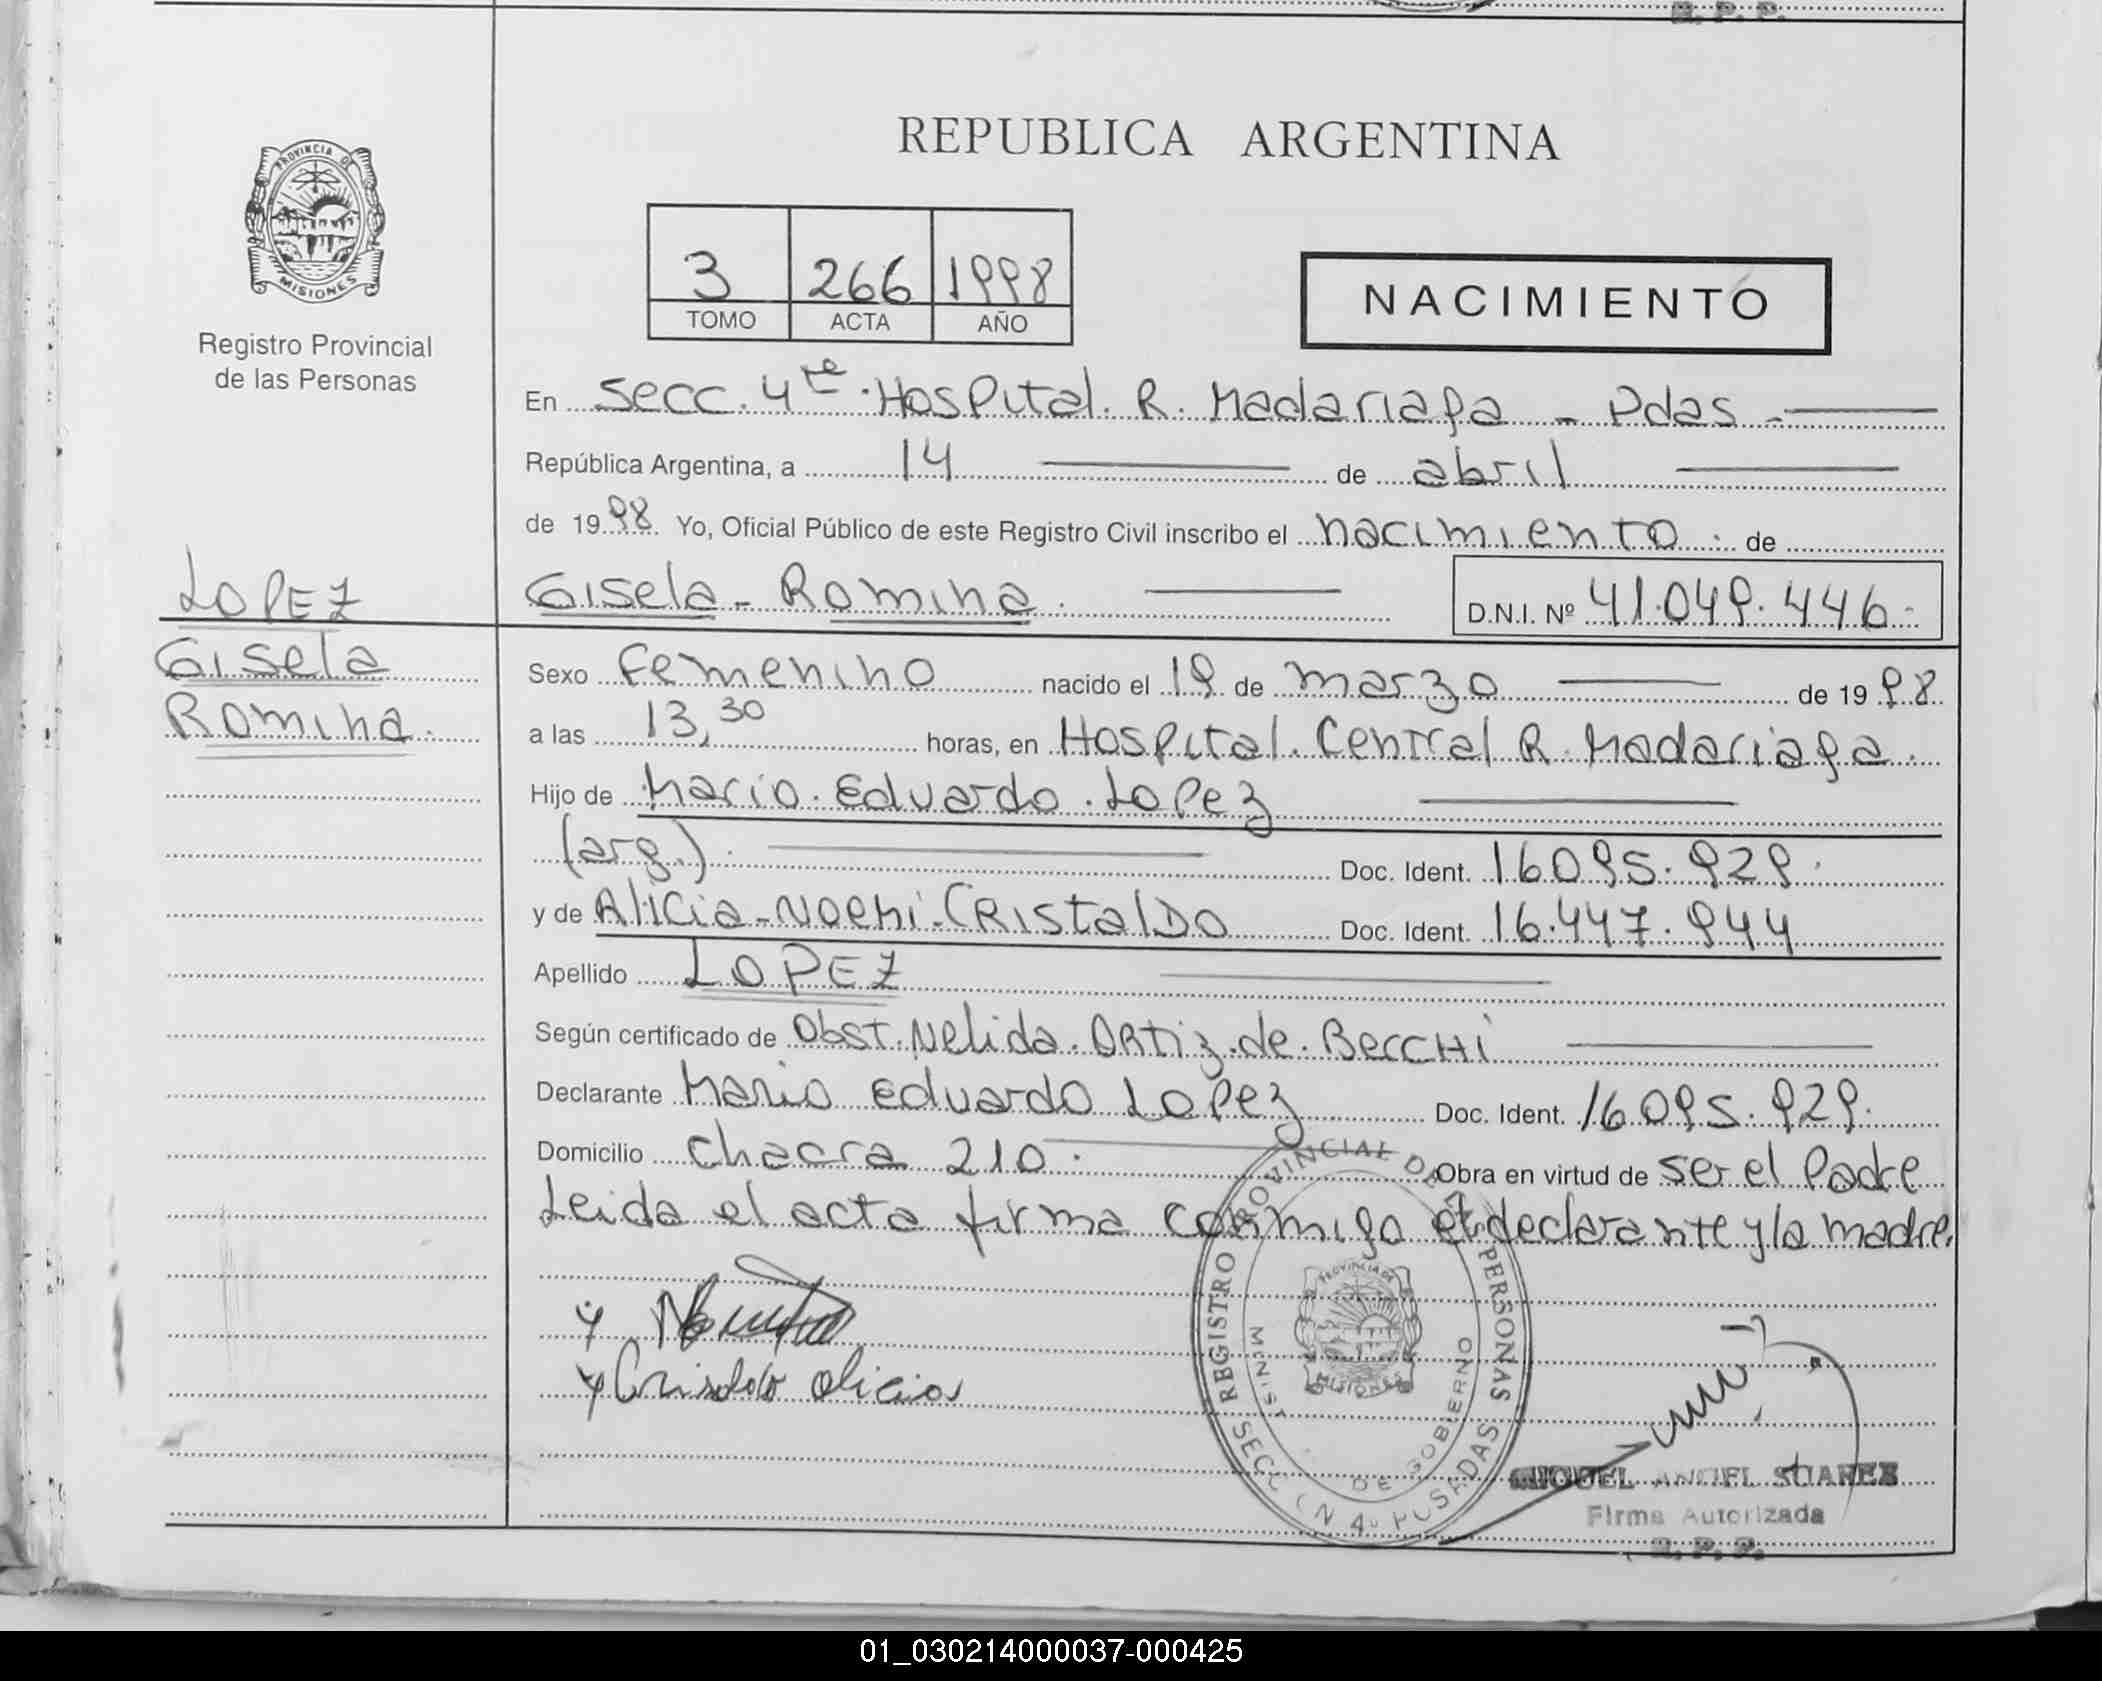 R. P. P.
REPUBLICA ARGENTINA
PROVINCIA DE
MISIONES
Registro Provincial
de las Personas
3 266 1998
TOMO ACTA AÑO
NACIMIENTO
En Secc. 4ta. Hospital. R. Madariaga - Pdas -
República Argentina, a 14 de abril
de 1998 Yo, Oficial Público de este Registro Civil inscribo el nacimiento. de
LOPEZ
Gisela - Romina. D.N.I. Nº 41.049.446.-
Gisela
Sexo Femenino nacido el 19 de marzo de 1998
Romina.
a las 13,30 horas, en Hospital. Central R. Madariaga.
Hijo de Mario. Eduardo. Lopez
(arg.) Doc. Ident. 16095.929.
y de Alicia - Noemi - CRistalDo Doc. Ident. 16.447.944
Apellido LOPEZ
Según certificado de Obst. Nelida. ORtiz. de. BeccHi
Declarante Mario Eduardo Lopez Doc. Ident. 16095.929.
Domicilio Chacra 210. Obra en virtud de ser el Padre
Leida el acta firma conmigo el declarante y la madre.
REGISTRO PROVINCIAL DE LAS PERSONAS
SECC. N 4º POSADAS
MINIST. DE GOBIERNO
PROVINCIA DE
MISIONES
Cristaldo Alicia
MIGUEL ANGEL SUAREZ
Firma Autorizada
R. P. P.
01_030214000037-000425